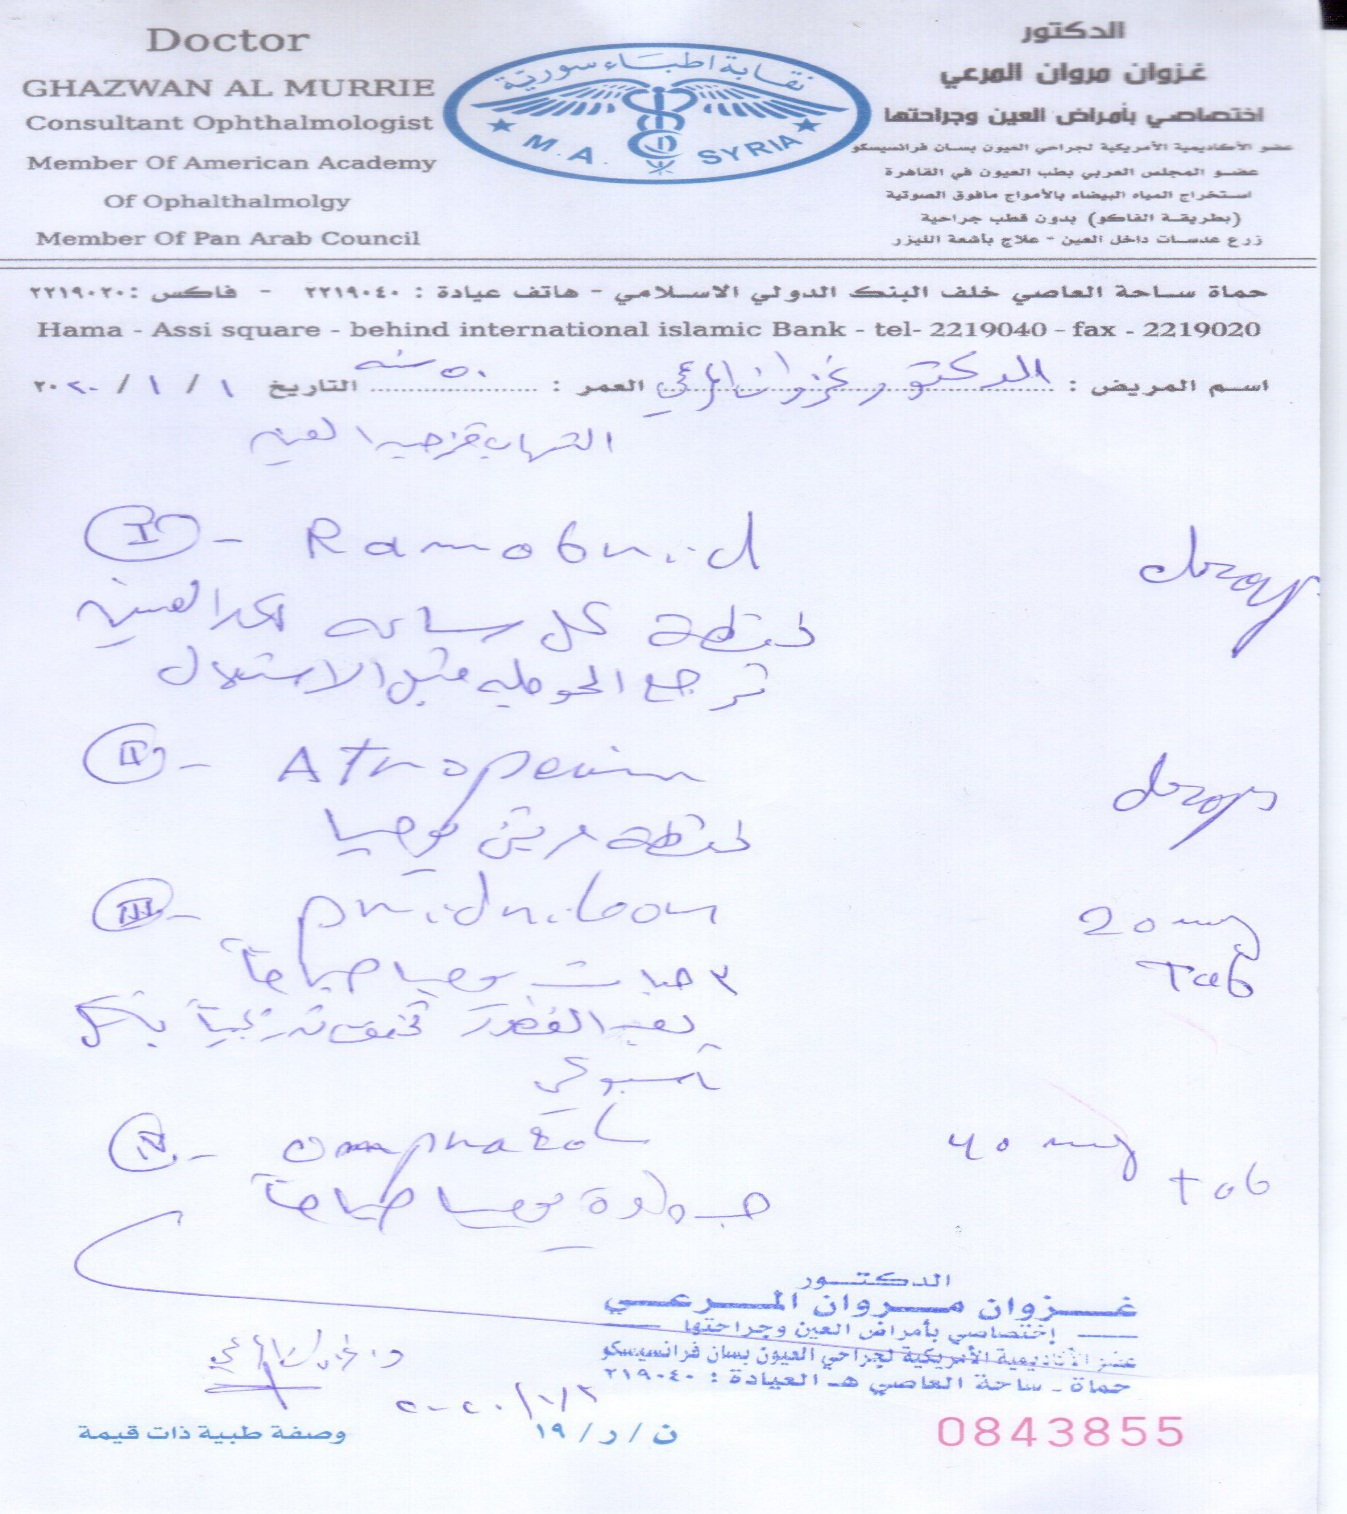 Doctor
GHAZWAN AL MURRIE
Consultant Ophthalmologist
Member Of American Academy
Of Ophalthalmolgy
Member Of Pan Arab Council
نقابة اطباء سورية
M.A. SYRIA
الدكتور
غزوان مروان المرعي
اختصاصي بأمراض العين وجراحتها
عضو الأكاديمية الأمريكية لجراحي العيون بسان فرانسيسكو
عضو المجلس العربي بطب العيون في القاهرة
استخراج المياه البيضاء بالأمواج مافوق الصوتية
(بطريقة الفاكو) بدون قطب جراحية
زرع عدسات داخل العين - علاج بأشعة الليزر
حماة ساحة العاصي خلف البنك الدولي الاسلامي - هاتف عيادة : ٢٢١٩٠٤٠ - فاكس : ٢٢١٩٠٢٠
Hama - Assi square - behind international islamic Bank - tel- 2219040 - fax - 2219020
اسم المريض : الدكتور غزوان المرعي العمر : ٥٠ سنه التاريخ ١ / ١ / ٢٠٢٠
التهاب قزحيه العين
I - drop
نقطة كل ساعه العين
ترج قبل الاستعمال
II - drops
نقطة مرتين يوميا
III - 20 mg
٣ حبات يوميا صباحاً Tab
بعد الفطور تدريجياً بشكل
اسبوعي
IV - 40 mg Tab
حبه واحدة يوميا صباحاً
الدكتور
غزوان مروان المرعي
إختصاصي بأمراض العين وجراحتها
عضو الأكاديمية الأمريكية لجراحي العيون بسان فرانسيسكو
حماة ـ ساحة العاصي هـ العيادة : ٢١٩٠٤٠
د. غزوان المرعي
وصفة طبية ذات قيمة
ن / ر / ١٩
0843855